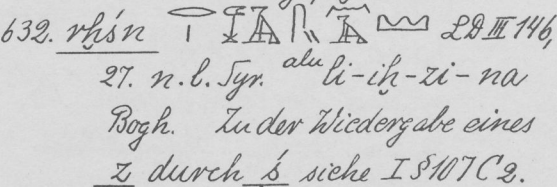 632. rḫśn LD III 146,
27. n. l. Syr. alu li-iḫ-zi-na
Bogh. Zu der Wiedergabe eines
z durch ś siehe I § 107 C 2.